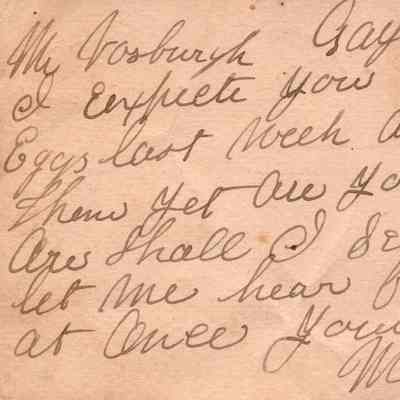 Mr Vosburgh Gay
I Expecte you
Eggs last week
them yet are yo
are shall I se
let me hear f
at Once your
M